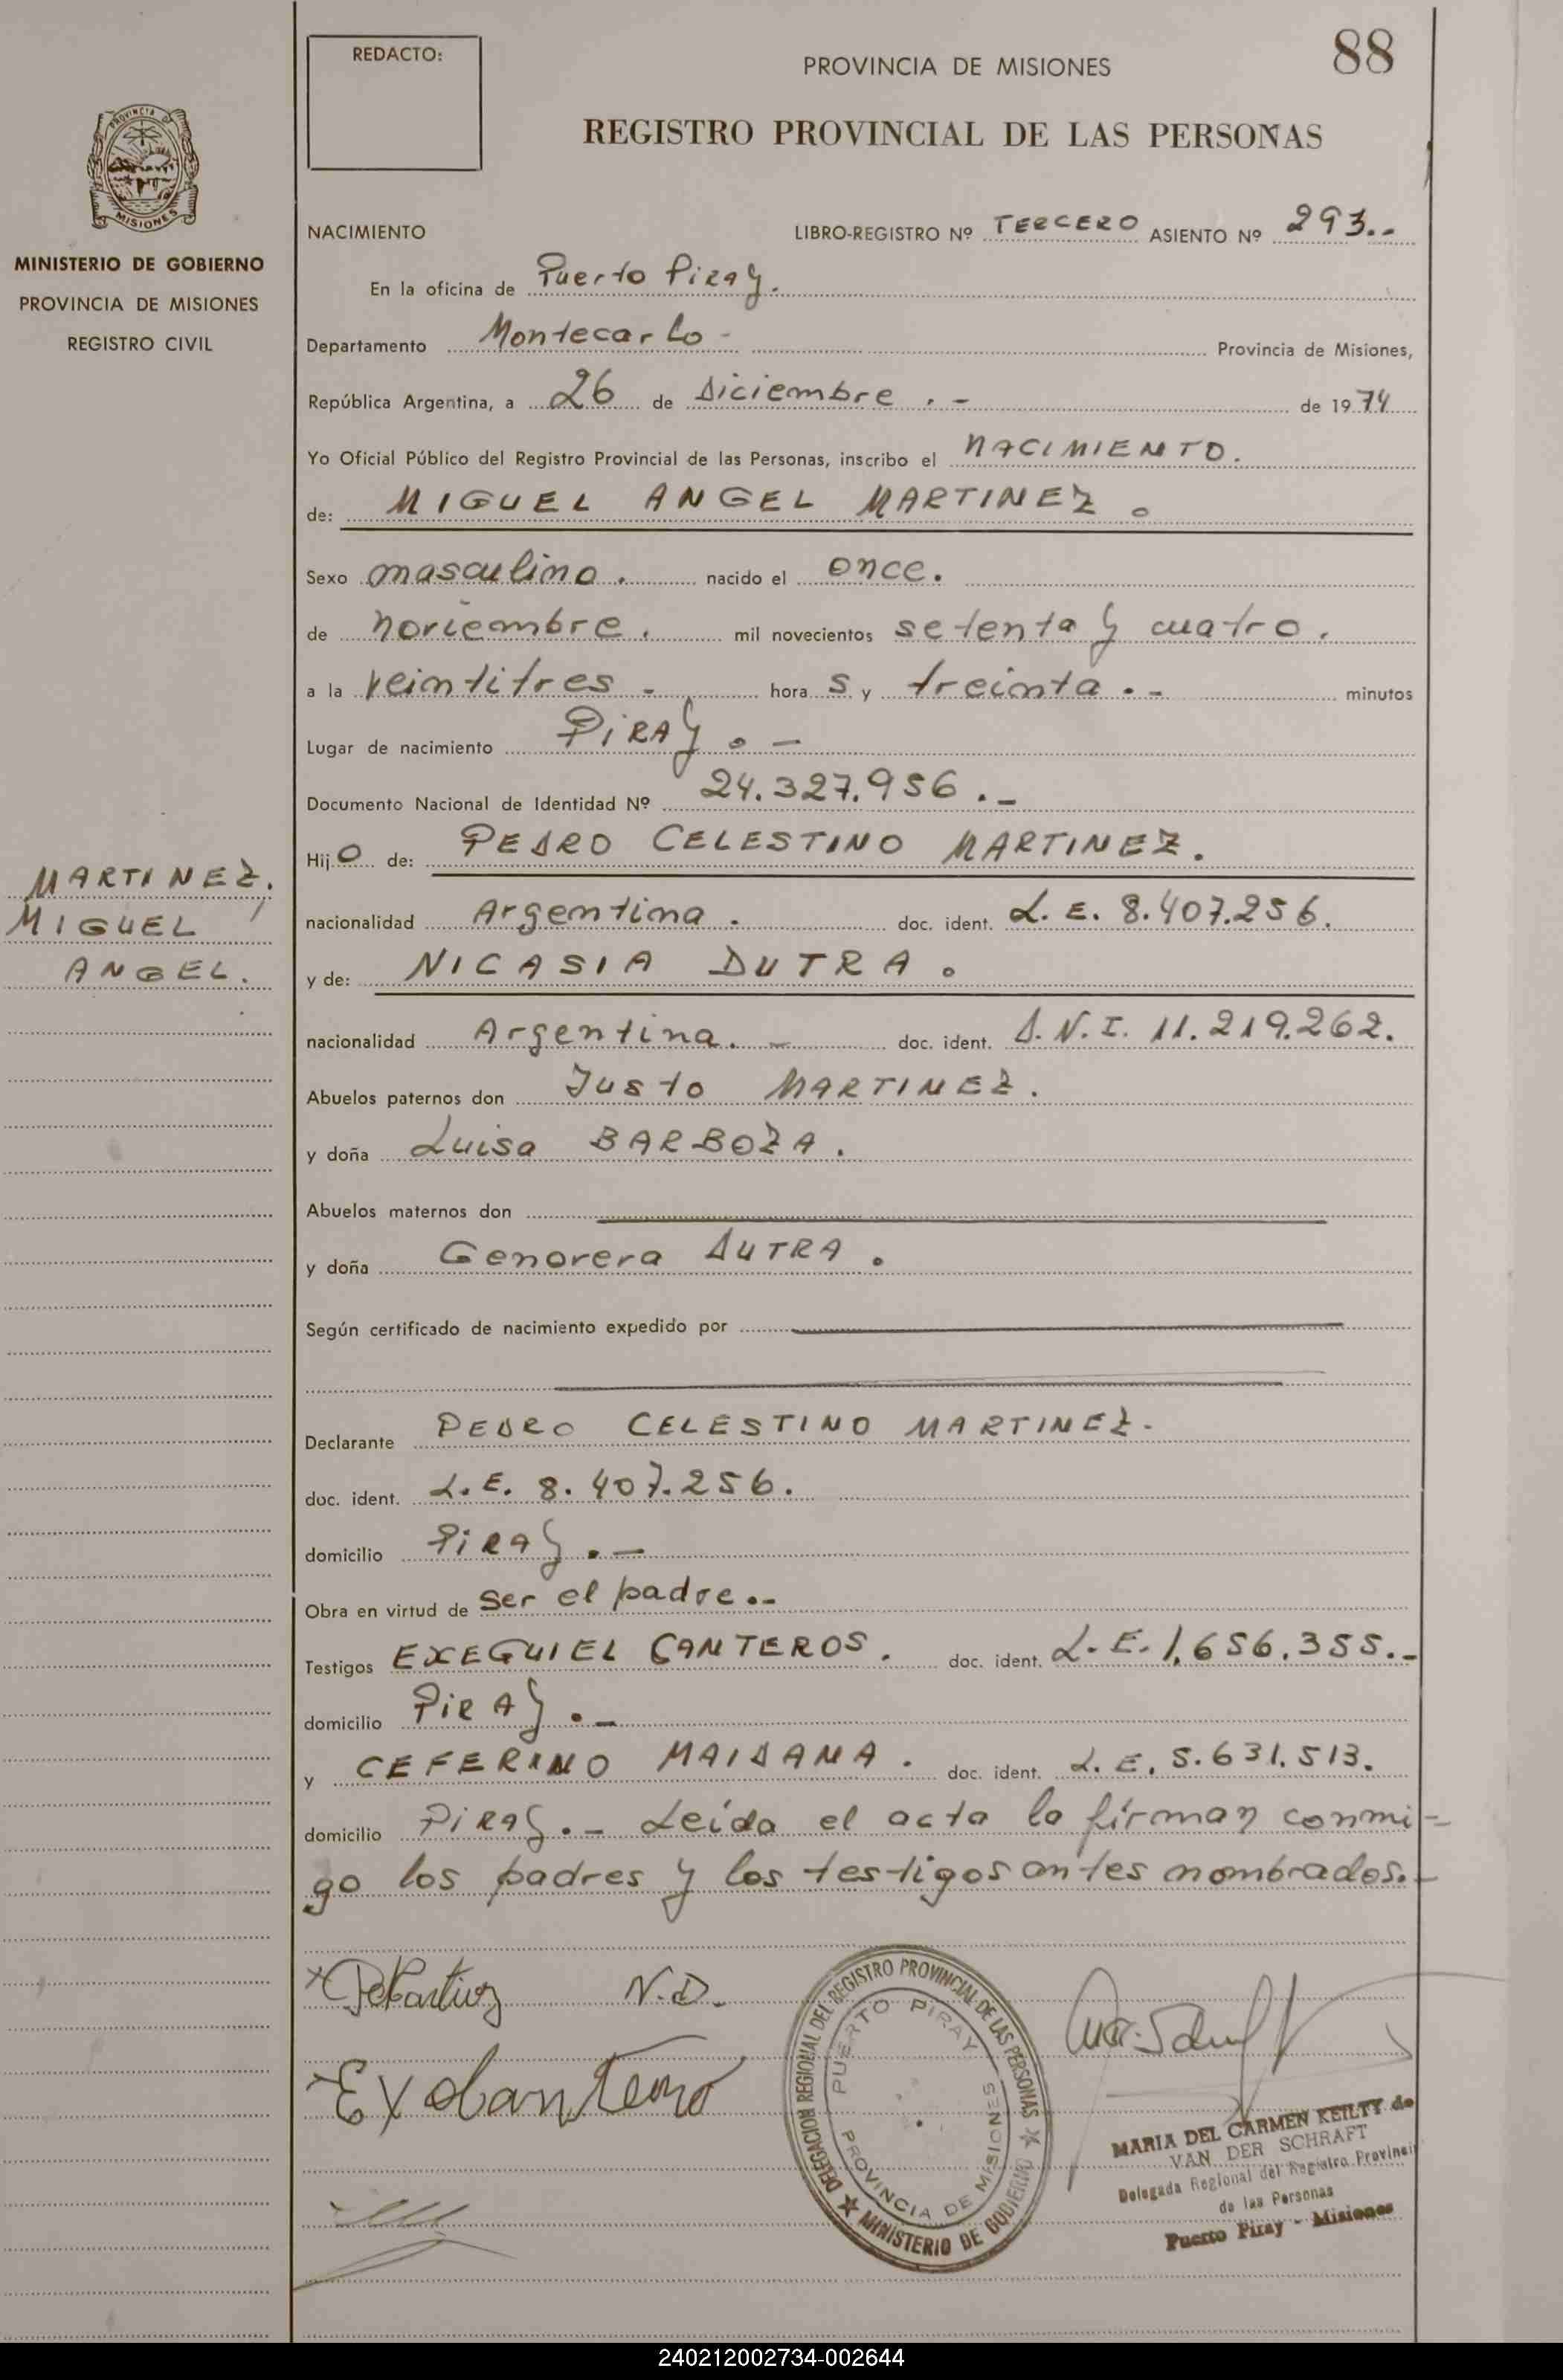 REDACTO:
PROVINCIA DE MISIONES
88
REGISTRO PROVINCIAL DE LAS PERSONAS
PROVINCIA
MISIONES
MINISTERIO DE GOBIERNO
PROVINCIA DE MISIONES
REGISTRO CIVIL
NACIMIENTO LIBRO-REGISTRO Nº TERCERO ASIENTO Nº 293.-
En la oficina de Puerto Piray.
Departamento Montecarlo - Provincia de Misiones,
República Argentina, a 26 de Diciembre . - de 1974
Yo Oficial Público del Registro Provincial de las Personas, inscribo el NACIMIENTO.
de: MIGUEL ANGEL MARTINEZ.
Sexo masculino. nacido el once.
de noviembre. mil novecientos setenta y cuatro.
a la veintitres - hora s y treinta . - minutos
Lugar de nacimiento PIRAY . -
Documento Nacional de Identidad Nº 24.327.956 . -
Hij o de: PEDRO CELESTINO MARTINEZ.
MARTINEZ.
MIGUEL
ANGEL.
nacionalidad Argentina . doc. ident. L. E. 8.407.256.
y de: NICASIA DUTRA .
nacionalidad Argentina. - doc. ident. D.N.I. 11.219.262.
Abuelos paternos don Justo MARTINEZ.
y doña Luisa BARBOZA .
Abuelos maternos don
y doña Genovera DUTRA .
Según certificado de nacimiento expedido por
Declarante PEDRO CELESTINO MARTINEZ-
doc. ident. L. E. 8.407.256.
domicilio PIRAY . -
Obra en virtud de ser el padre.-
Testigos EXEQUIEL CANTEROS . doc. ident. L. E. 1.656.355.-
domicilio PIRAY . -
y CEFERINO MAIDANA . doc. ident. L. E. 5.631.513.
domicilio PIRAY . - Leída el acta la firman conmi-
go los padres y los testigos antes nombrados.-
N.D.
DELEGACION REGIONAL DEL REGISTRO PROVINCIAL DE LAS PERSONAS
MINISTERIO DE GOBIERNO
PUERTO PIRAY
PROVINCIA DE MISIONES
MARIA DEL CARMEN KEILTY de
VAN DER SCHRAFT
Delegada Regional del Registro Provincial
de las Personas
Puerto Piray - Misiones
240212002734-002644